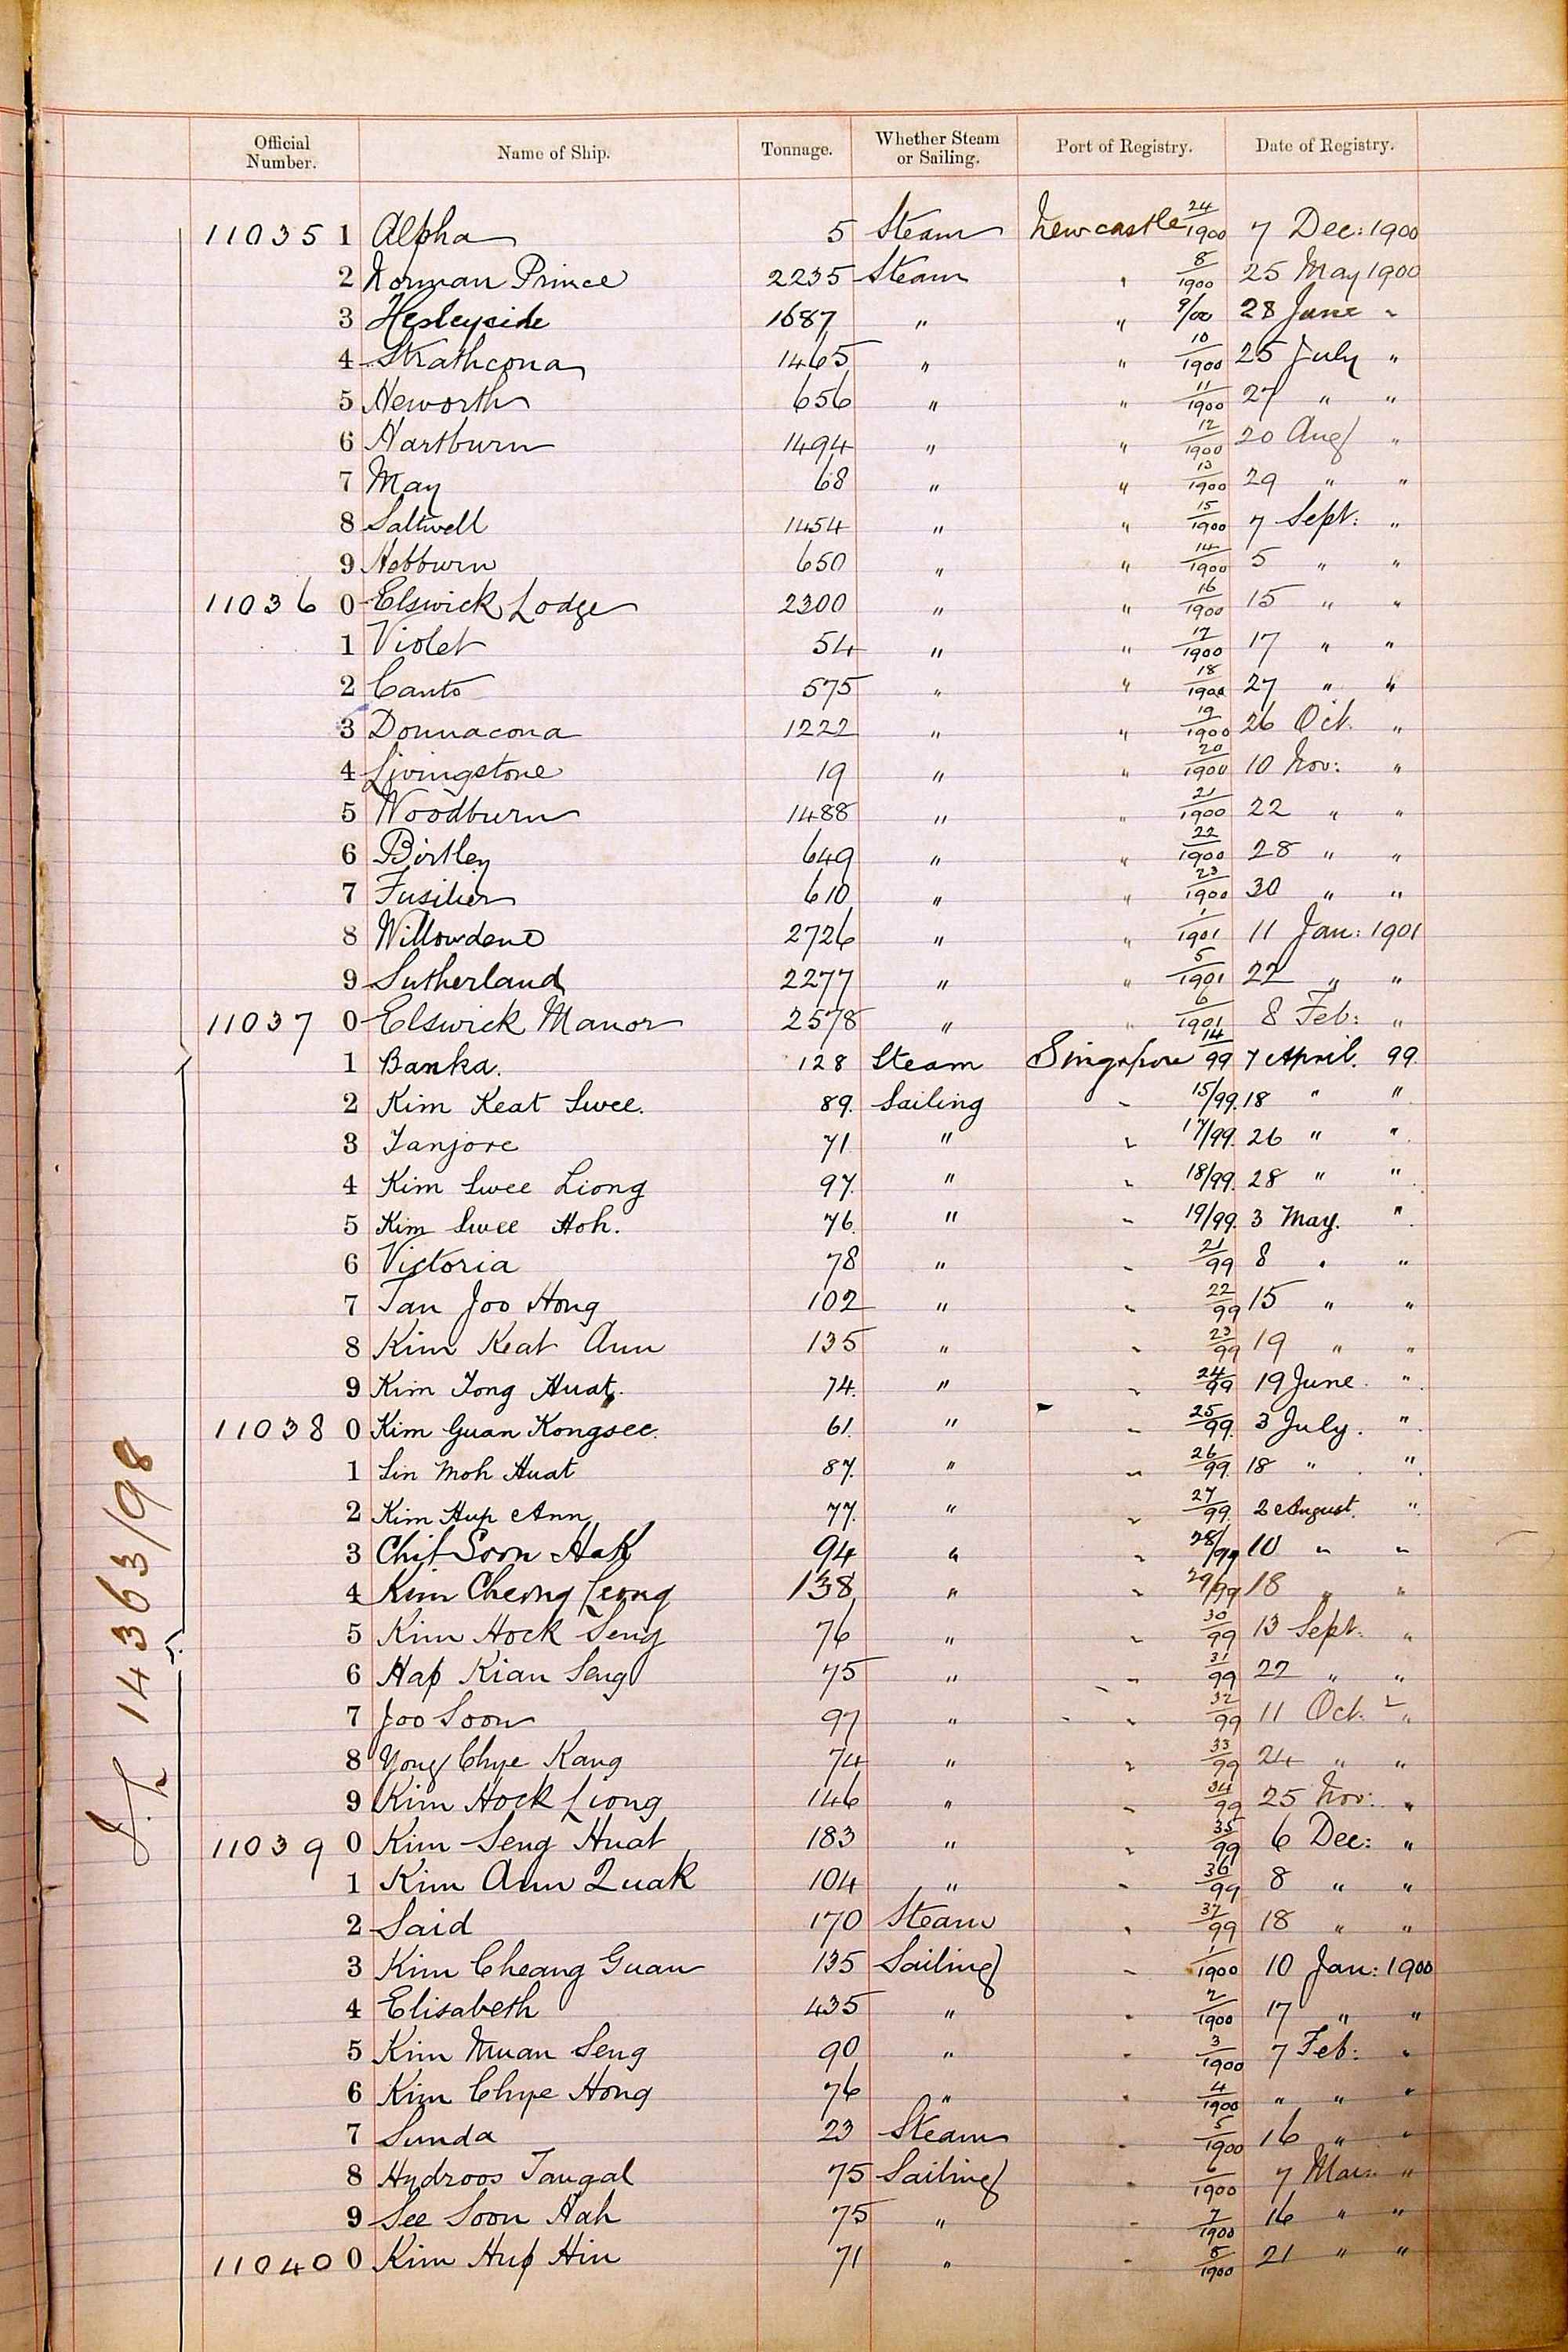 Official Number. Name of Ship. Tonnage. Whether Steam or Sailing. Port of Registry. Date of Registry.
11035 1 Alpha 5 Steam Newcastle 24/1900 7 Dec: 1900
2 Norman Prince 2235 Steam " 8/1900 25 May 1900
3 Hesleyside 1687 " " 9/00 28 June "
4 Strathcona 1465 " " 10/1900 25 July "
5 Heworth 656 " " 11/1900 27 " "
6 Hartburn 1494 " " 12/1900 20 Aug "
7 May 68 " " 13/1900 29 " "
8 Saltwell 1454 " " 15/1900 7 Sept: "
9 Hebburn 650 " " 14/1900 5 " "
11036 0 Elswick Lodge 2300 " " 16/1900 15 " "
1 Violet 54 " " 17/1900 17 " "
2 Canto 575 " " 18/1900 27 " "
3 Donnacona 1222 " " 19/1900 26 Oct. "
4 Livingstone 19 " " 20/1900 10 Nov: "
5 Woodburn 1488 " " 21/1900 22 " "
6 Birtley 649 " " 22/1900 28 " "
7 Fusilier 610 " " 23/1900 30 " "
8 Willowdene 2726 " " 1/1901 11 Jan: 1901
9 Sutherland 2277 " " 5/1901 22 " "
11037 0 Elswick Manor 2578 " " 6/1901 8 Feb: "
1 Banka. 128 Steam Singapore 14/99 7 April. 99.
2 Kim Keat Swee. 89. Sailing " 15/99. 18 " "
3 Tanjore 71 " " 17/99. 26 " "
4 Kim Swee Liong 97. " " 18/99. 28 " "
5 Kim Swee Hoh. 76. " " 19/99. 3 May. "
6 Victoria 78 " " 21/99 8 " "
7 Tan Joo Hong 102 " " 22/99 15 " "
8 Kim Keat Ann 135 " " 23/99 19 " "
9 Kim Tong Huat. 74. " " 24/99 19 June. "
11038 0 Kim Guan Kongsee. 61. " " 25/99. 3 July. "
1 Sin Moh Huat 87. " " 26/99. 18 " "
2 Kim Hup Ann 77. " " 27/99. 2 August. "
3 Chit Soon Hak 94 " " 28/99 10 " "
4 Kim Cheong Leong 138 " " 29/99 18 " "
5 Kim Hock Seng 76 " " 30/99 13 Sept: "
6 Hap Kian Seng 75 " " 31/99 22 " "
7 Joo Soon 97 " " 32/99 11 Oct: "
8 Yong Chye Kang 74 " " 33/99 24 " "
9 Kim Hock Liong 146 " " 34/99 25 Nov: "
11039 0 Kim Seng Huat 183 " " 35/99 6 Dec: "
1 Kim Ann Quak 104 " " 36/99 8 " "
2 Said 170 Steam " 37/99 18 " "
3 Kim Cheang Guan 135 Sailing " 1/1900 10 Jan: 1900
4 Elisabeth 435 " " 2/1900 17 " "
5 Kim Muan Seng 90 " " 3/1900 7 Feb: "
6 Kim Chye Hong 76 " " 4/1900 " " "
7 Sunda 23 Steam " 5/1900 16 " "
8 Hydroos Tangal 75 Sailing " 6/1900 7 Mar: "
9 See Soon Hah 75 " " 7/1900 16 " "
11040 0 Kim Hup Hin 71 " " 8/1900 21 " "
14363/98